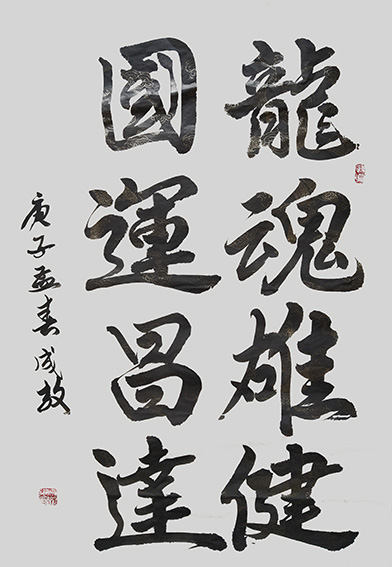 龍魂雄健
國運昌達
庚子孟春成故